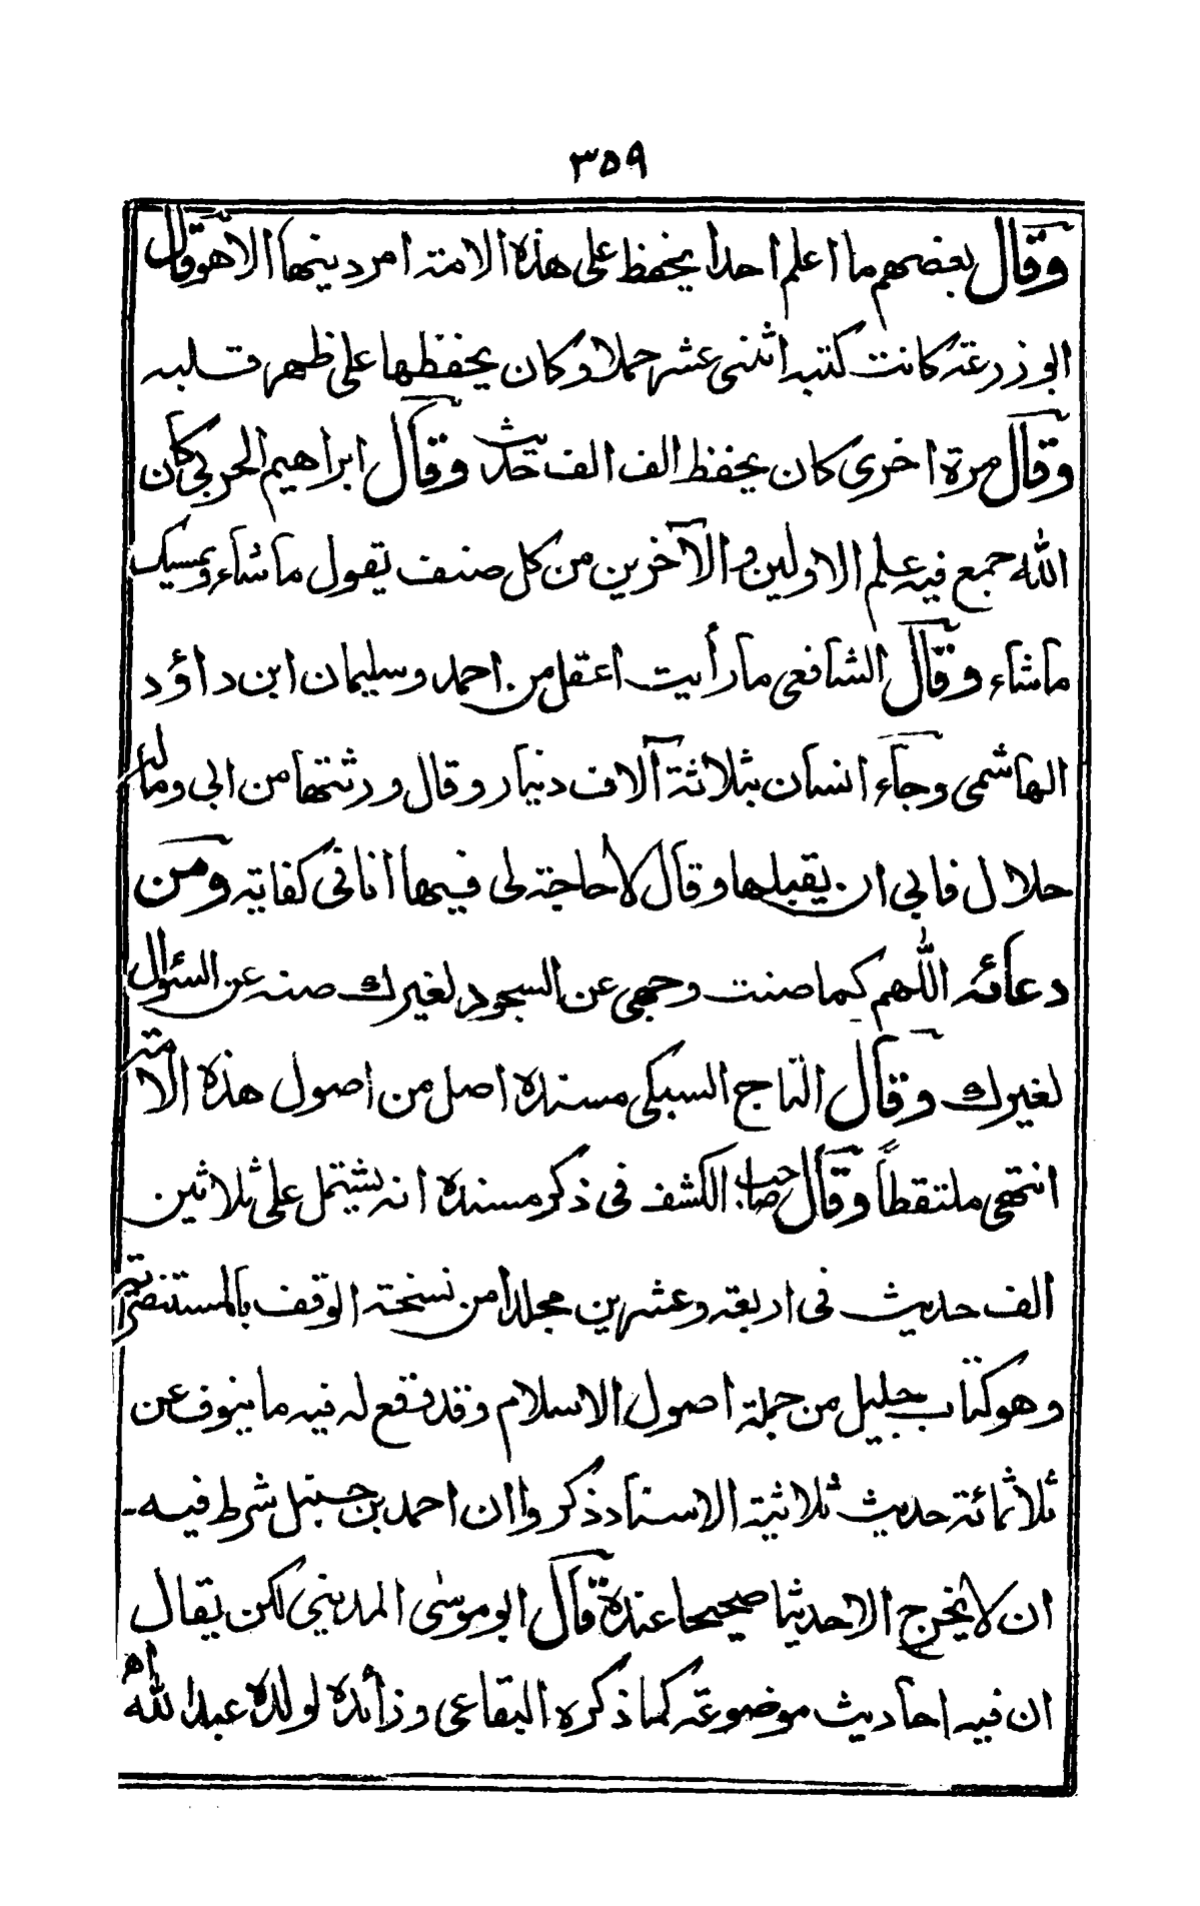 ٣٥٩
وقال بعضهم ما اعلم احدا يحفظ على هذه الامة امر دينها الا هو وقال
ابو زرعة كانت كتبه اثنى عشر حملا وكان يحفظها على ظهر قلبه
وقال مرة اخرى كان يحفظ الف الف حديث وقال ابراهيم الحربي كان
الله جمع فيه علم الاولين والآخرين من كل صنف يقول ماشاء ويمسك
ماشاء وقال الشافعى ما رأيت اعقل من احمد وسليمان ابن داؤد
الهاشمى وجاء انسان بثلاثة آلاف دينار وقال ورثتها من ابى وماله
حلال فابى ان يقبلها وقال لا حاجة لى فيها انا فى كفاية ومن
دعائه اللهم كما صنت وجهى عن السجود لغيرك صنه عن السئوال
لغيرك وقال التاج السبكى مسنده اصل من اصول هذه الامة
انتهى ملتقطاً وقال صاحب الكشف فى ذكر مسنده انه يشتمل على ثلاثين
الف حديث فى اربعة وعشرين مجلدا من نسخة الوقف بالمستنصرية
وهو كتاب جليل من جملة اصول الاسلام وقد وقع له فيه ما ينوف عن
ثلاثمائة حديث ثلاثية الاسناد ذكروا ان احمد بن حنبل شرط فيه
ان لا يخرج الا حديثا صحيحا عنده قال ابو موسى المديني لكن يقال
ان فيه احاديث موضوعة كما ذكره البقاعى وزائده لولده عبدالله اه